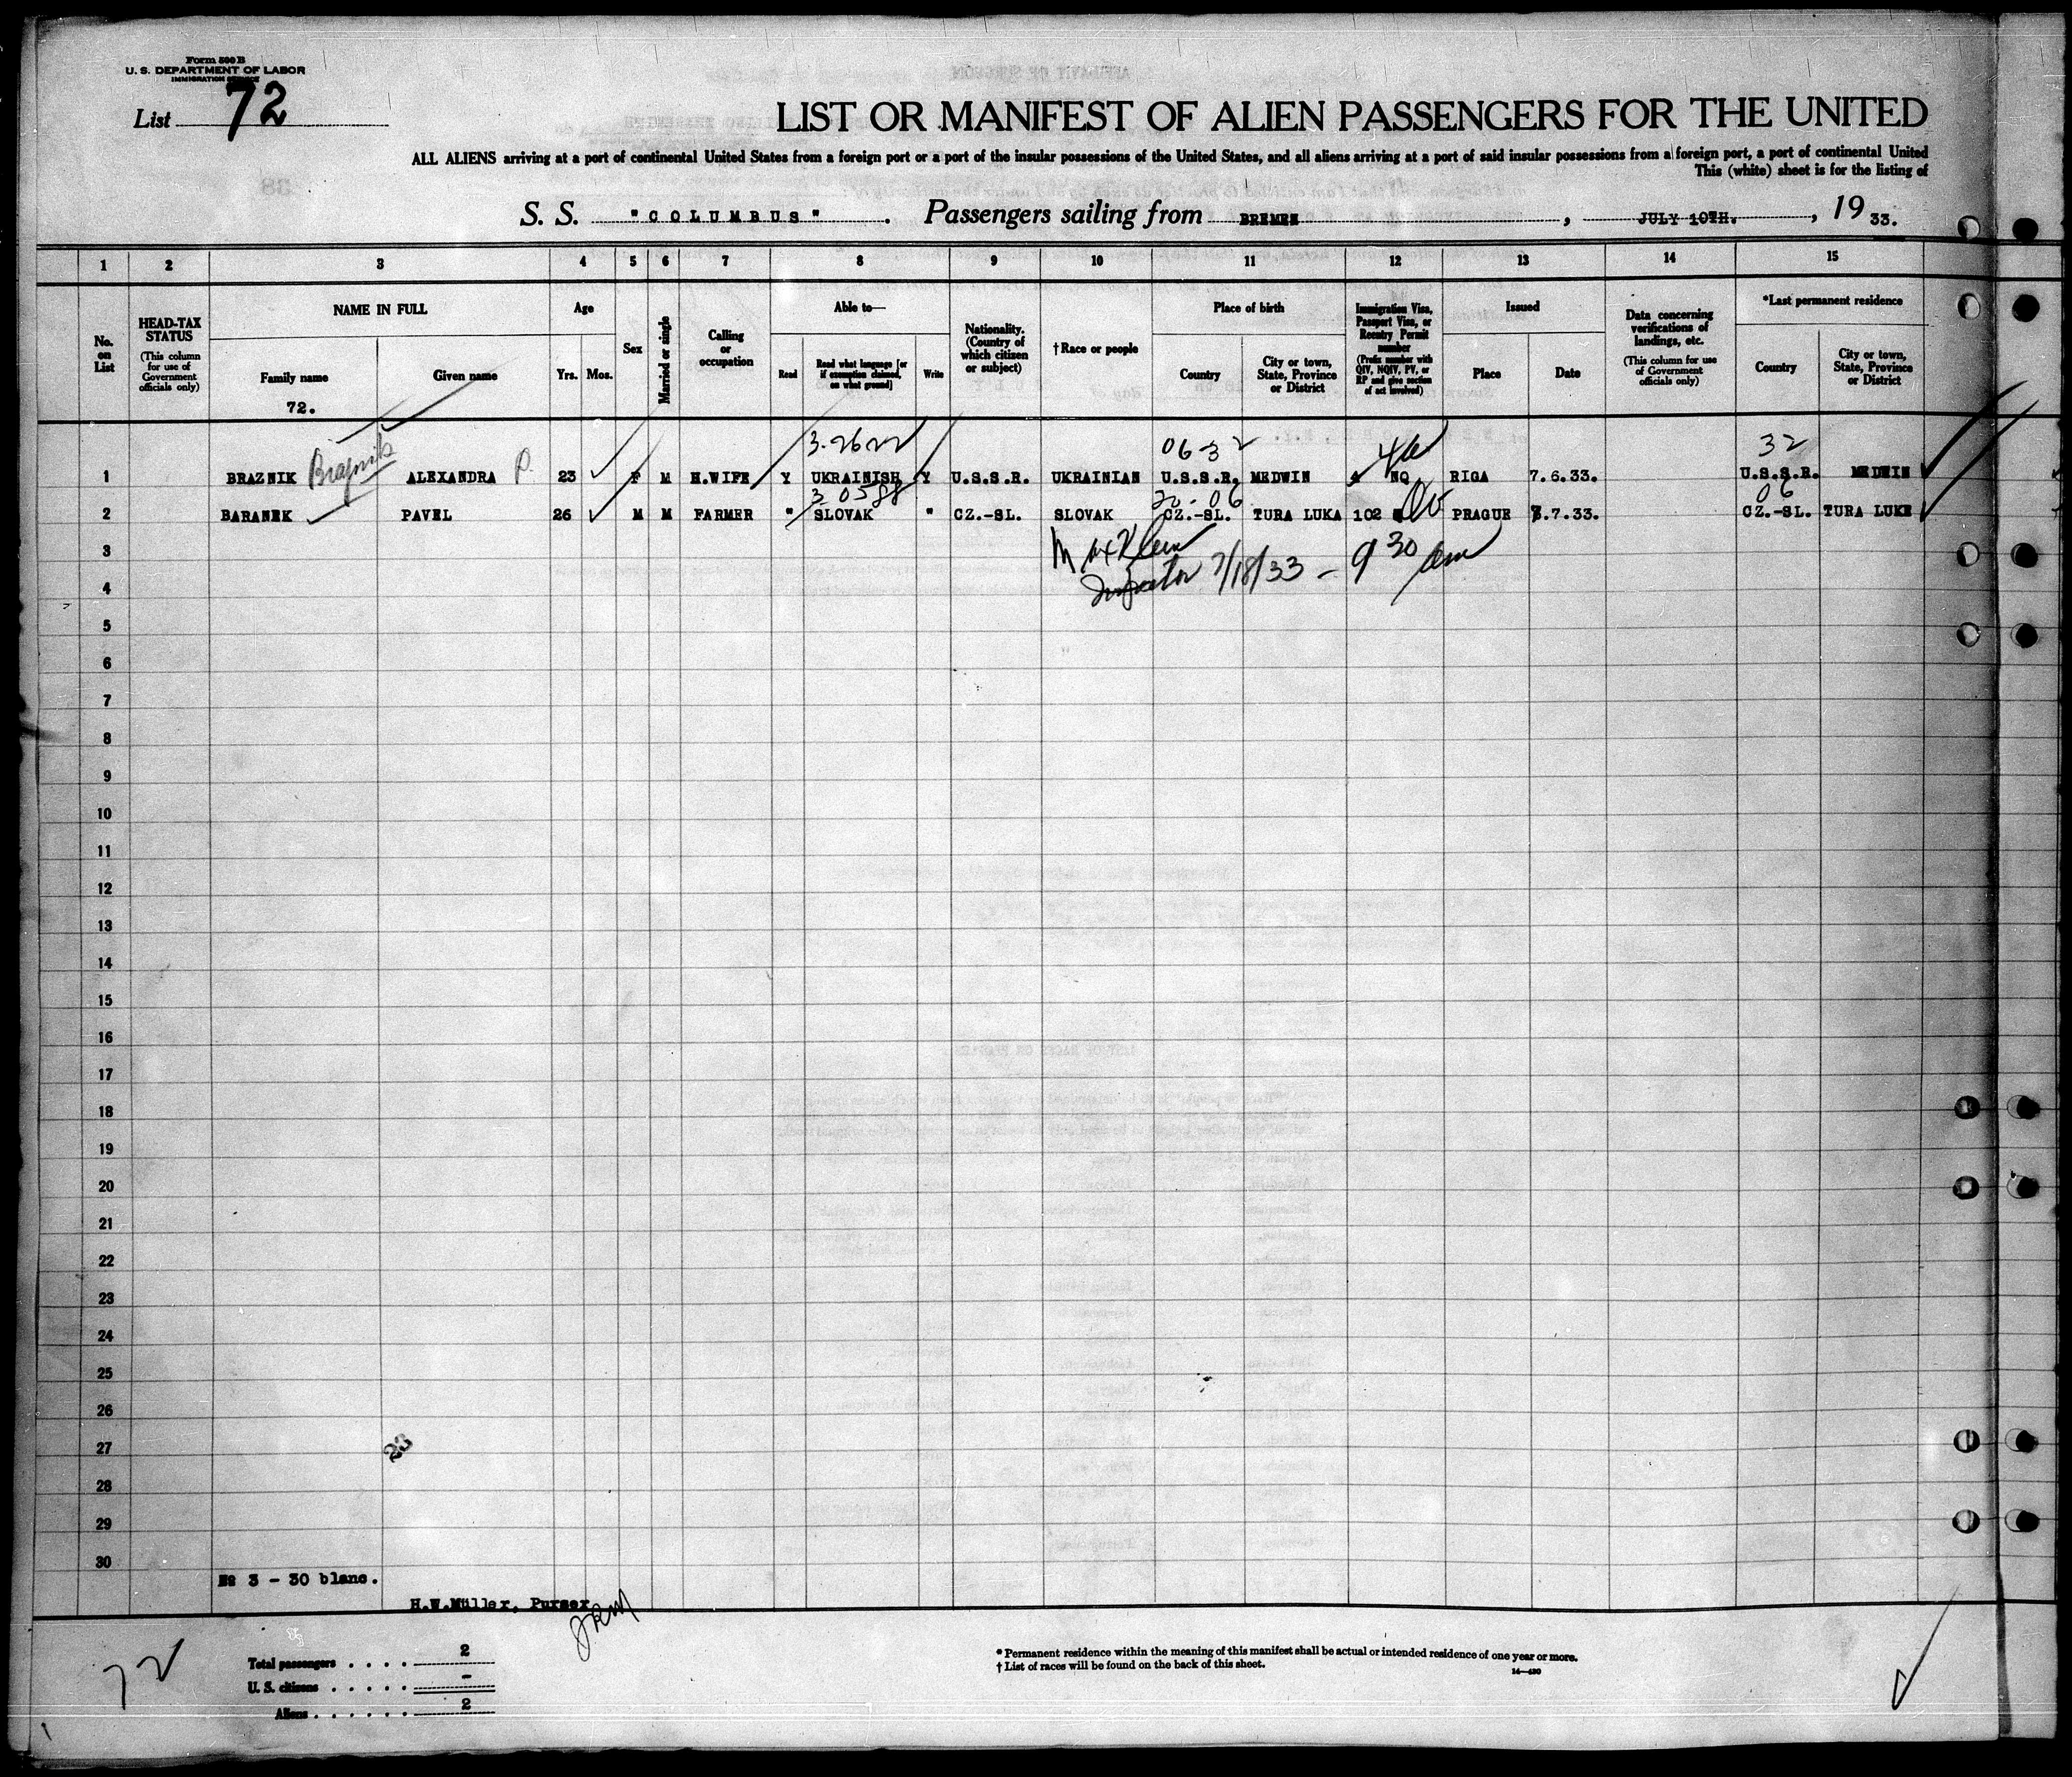 Form 500 B
U. S. DEPARTMENT OF LABOR
IMMIGRATION SERVICE
List 72
LIST OR MANIFEST OF ALIEN PASSENGERS FOR THE UNITED
ALL ALIENS arriving at a port of continental United States from a foreign port or a port of the insular possessions of the United States, and all aliens arriving at a port of said insular possessions from a foreign port, a port of continental United
This (white) sheet is for the listing of
S. S. "COLUMBUS". Passengers sailing from BREMEN, JULY 10TH., 19 33.
1 2 3 4 5 6 7 8 9 10 11 12 13 14 15
No. on List
HEAD-TAX STATUS
(This column for use of Government officials only)
NAME IN FULL
Family name
Given name
72.
Age
Yrs. Mos.
Sex
Married or single
Calling or occupation
Able to—
Read
Read what language [or if exemption claimed, on what ground]
Write
Nationality. (Country of which citizen or subject)
†Race or people
Place of birth
Country
City or town, State, Province or District
Immigration Visa, Passport Visa, or Reentry Permit number
(Prefix number with QIV, NQIV, PV, or RP and give section of act involved)
Issued
Place
Date
Data concerning verifications of landings, etc.
(This column for use of Government officials only)
*Last permanent residence
Country
City or town, State, Province or District
3-2622 06 32 4a 32
1 BRAZNIK Brajnik ALEXANDRA P. 23 F M H.WIFE Y UKRAINISH Y U.S.S.R. UKRAINIAN U.S.S.R. MEDWIN NQ RIGA 7.6.33. U.S.S.R. MEDWIN
3 0588 20-06 06
2 BARANEK PAVEL 26 M M FARMER " SLOVAK " CZ.-SL. SLOVAK CZ.-SL. TURA LUKA 102 PRAGUE 7.33. CZ.-SL. TURA LUKE
3
Max Klein
4
Inspector 7/18/33 - 9 30 am
5
6
7
8
9
10
11
12
13
14
15
16
17
18
19
20
21
22
23
24
25
26
27
23
28
29
30
No 3 - 30 blanc.
H.W.Müller, Purser
JRM
72
Total passengers . . . . 2
U. S. citizens . . . . . -
Aliens . . . . . . 2
* Permanent residence within the meaning of this manifest shall be actual or intended residence of one year or more.
† List of races will be found on the back of this sheet.
14—430